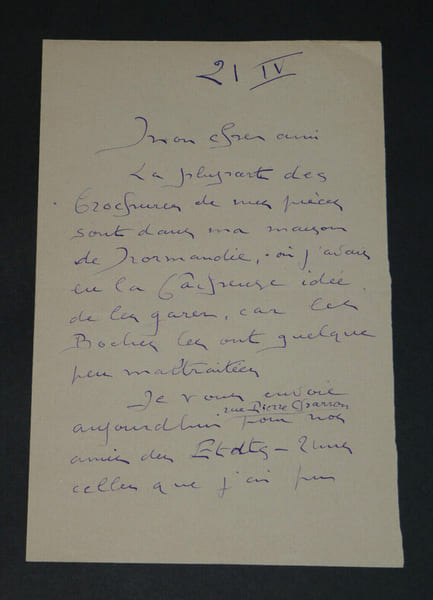 21 IV
Mon cher ami
La plupart des
brochures de mes pièces
sont dans ma maison
de Normandie, où j'avais
eu la fâcheuse idée
de les garer, car les
Boches les ont quelque
peu maltraitées
Je vous envoie
rue Pierre Charron
aujourd'hui pour nos
amis des Etats-Unis
celles que j'ai pu